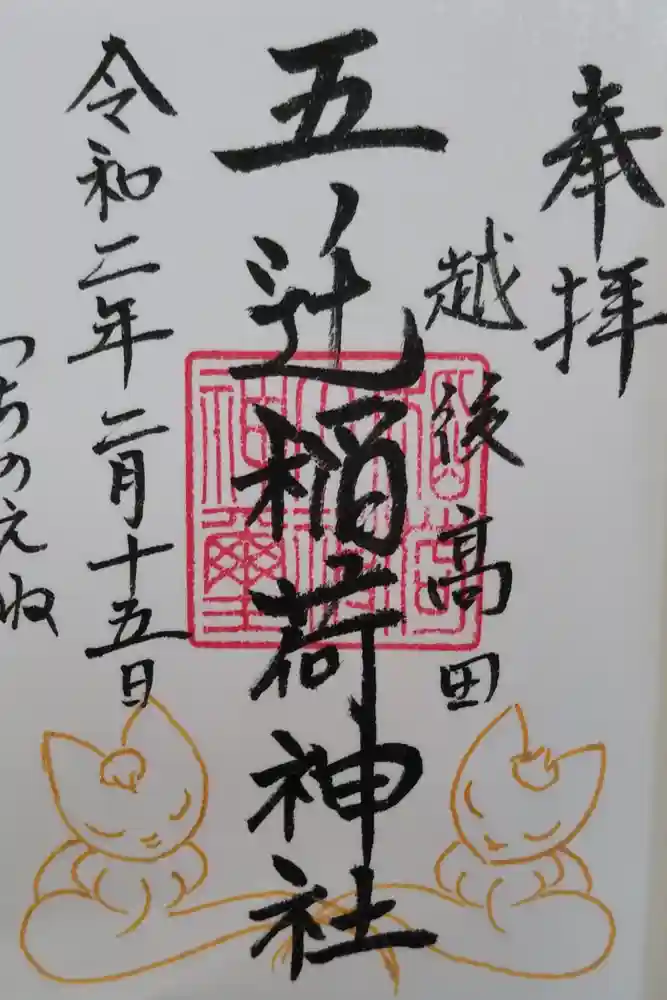 奉拝
越後高田
五辻稲荷神社
令和二年二月十五日
つちのえ収